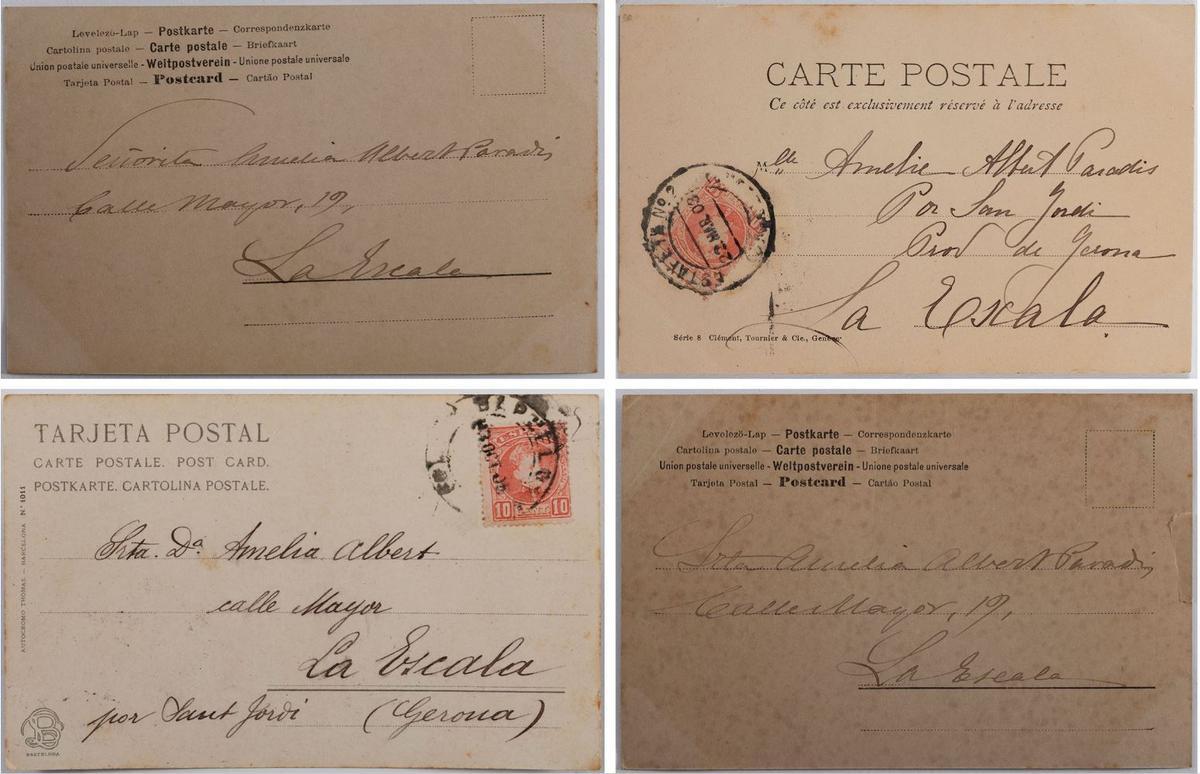 Levelező-Lap — Postkarte — Correspondenzkarte
Cartolina postale — Carte postale — Briefkaart
Union postale universelle - Weltpostverein - Unione postale universale
Tarjeta Postal — Postcard — Cartão Postal
Señorita Amelia Albert Paradis
Calle Mayor, 19,
La Escala
CARTE POSTALE
Ce côté est exclusivement réservé à l'adresse
Mlle Amelie Albert Paradis
Por San Jordi
Prov de Gerona
La Escala
ESTAFETA Nº 2
22 MAR 03
Série 8 Clément, Tournier & Cie., Genève
TARJETA POSTAL
CARTE POSTALE. POST CARD.
POSTKARTE. CARTOLINA POSTALE.
AUTOCROMO THOMAS — BARCELONA Nº 1011
10 10
Srta. Dª Amelia Albert
calle Mayor
La Escala
por Sant Jordi (Gerona)
BARCELONA
Levelező-Lap — Postkarte — Correspondenzkarte
Cartolina postale — Carte postale — Briefkaart
Union postale universelle - Weltpostverein - Unione postale universale
Tarjeta Postal — Postcard — Cartão Postal
Srta Amelia Albert Paradis,
Calle Mayor, 19,
La Escala